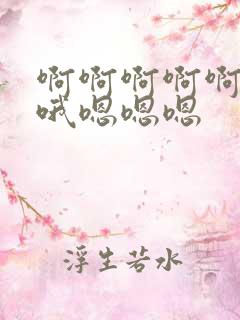 啊啊啊啊啊
哦嗯嗯嗯
浮生若水